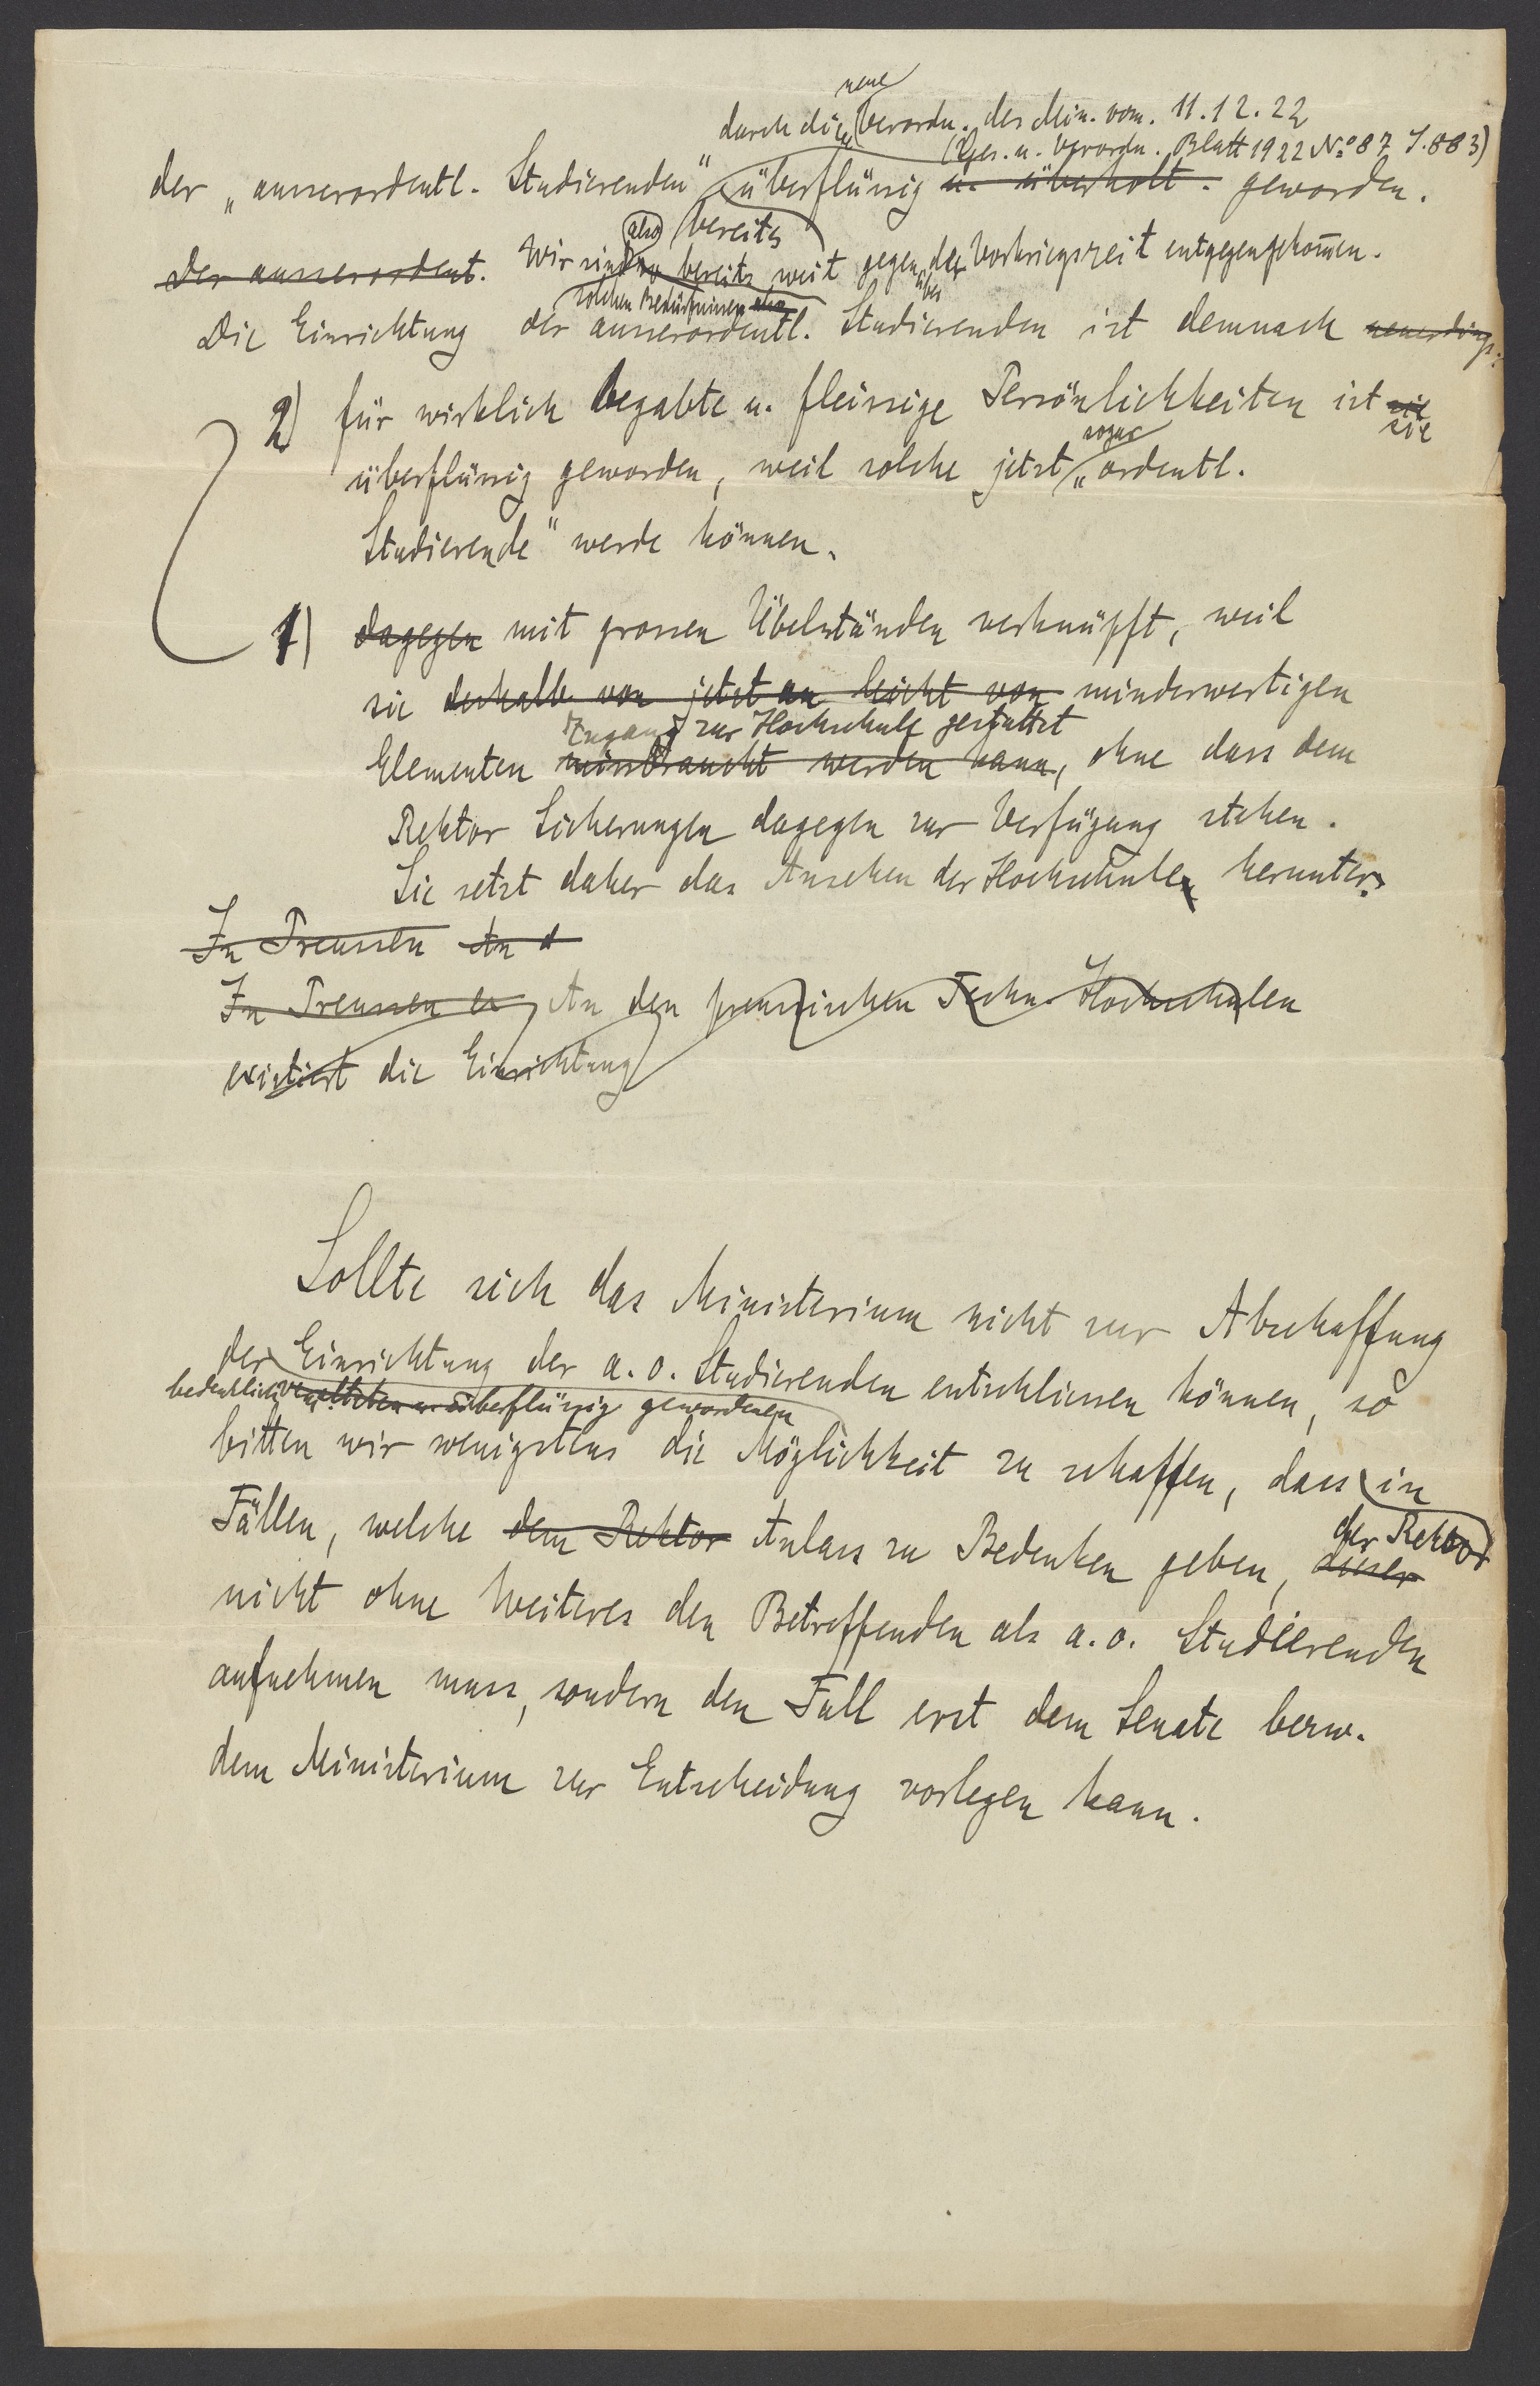 neue
durch die Verordn. des Min. vom. 11.12.22
(Ges. u. Verordn. Blatt 1922 No 87 S. 883)
der „ausserordentl. Studierenden" überflüssig u. überholt. geworden.
also bereits
der ausserordent. Wir sind bereits weit gegenüber der Vorkriegszeit entgegengekom̅en.
solchen Bedürfnissen also
Die Einrichtung der ausserordentl. Studierenden ist demnach neuerdings:
2) für wirklich begabte u. fleissige Persönlichkeiten ist sie
sie
sogar
überflüssig geworden, weil solche jetzt „ordentl.
Studierende" werde können.
1) dagegen mit grossen Übelständen verknüpft, weil
sie deshalb von jetzt an leicht von minderwertigen
Zugang zur Hochschule gestattet
Elementen missbraucht werden kann, ohne dass dem
Rektor Sicherungen dagegen zur Verfügung stehen.
Sie setzt daher das Ansehen der Hochschulen herunter.
In Preussen An d
In Preussen er An den preussischen Techn. Hochschulen
existiert die Einrichtung
Sollte sich das Ministerium nicht zur Abschaffung
der Einrichtung der a.o. Studierenden entschliessen können, so
bedenklich veralteten u. überflüssig gewordenen
bitten wir wenigstens die Möglichkeit zu schaffen, dass in
der Rektor
Fällen, welche dem Rektor Anlass zu Bedenken geben, dieser
nicht ohne Weiteres den Betreffenden als a.o. Studierenden
aufnehmen muss, sondern den Fall erst dem Senate bezw.
dem Ministerium zur Entscheidung vorlegen kann.